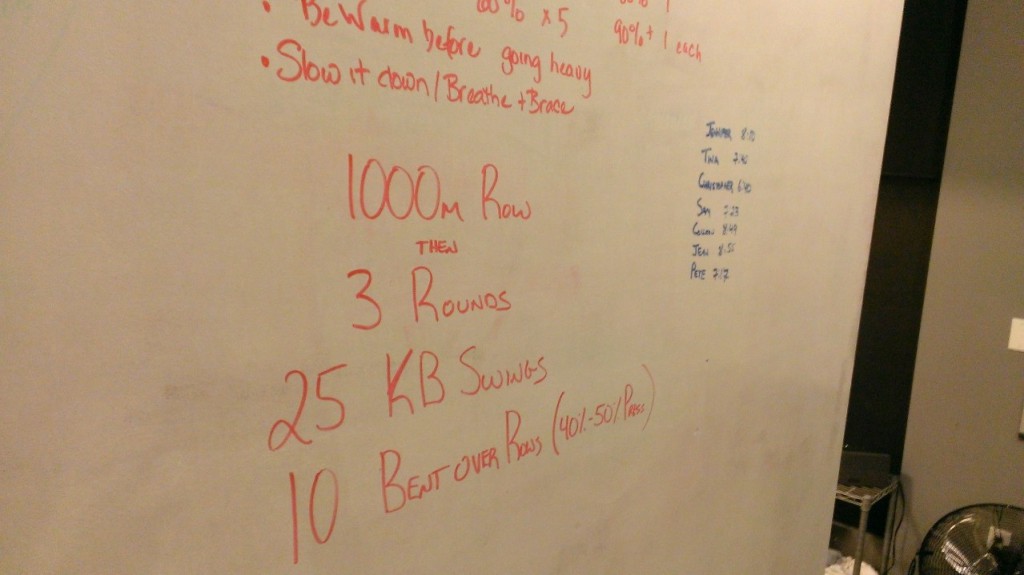 x 5
90% + 1 each
• Be Warm before going heavy
• Slow it down / Breathe + Brace
1000m Row
THEN
3 ROUNDS
25 KB SWINGS
10 BENT OVER ROWS (40%-50% PRESS)
TINA 7:46
CHRISTOPHER 6:40
SAM 7:23
8:49
JEN 8:55
PETE 7:17